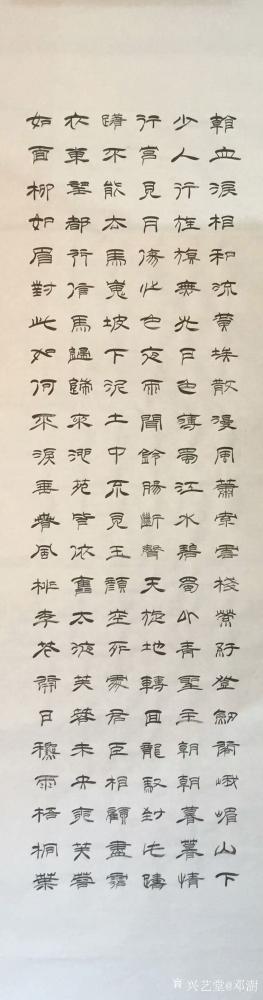 看血淚相和流黃埃散漫風蕭索雲棧縈紆登劍閣峨嵋山下
少人行旌旗無光日色薄蜀江水碧蜀山青聖主朝朝暮暮情
行宮見月傷心色夜雨聞鈴腸斷聲天旋地轉回龍馭到此躊
躇不能去馬嵬坡下泥土中不見玉顏空死處君臣相顧盡霑
衣東望都門信馬歸歸來池苑皆依舊太液芙蓉未央柳芙蓉
如面柳如眉對此如何不淚垂春風桃李花開日秋雨梧桐葉
兴艺堂@邓澍